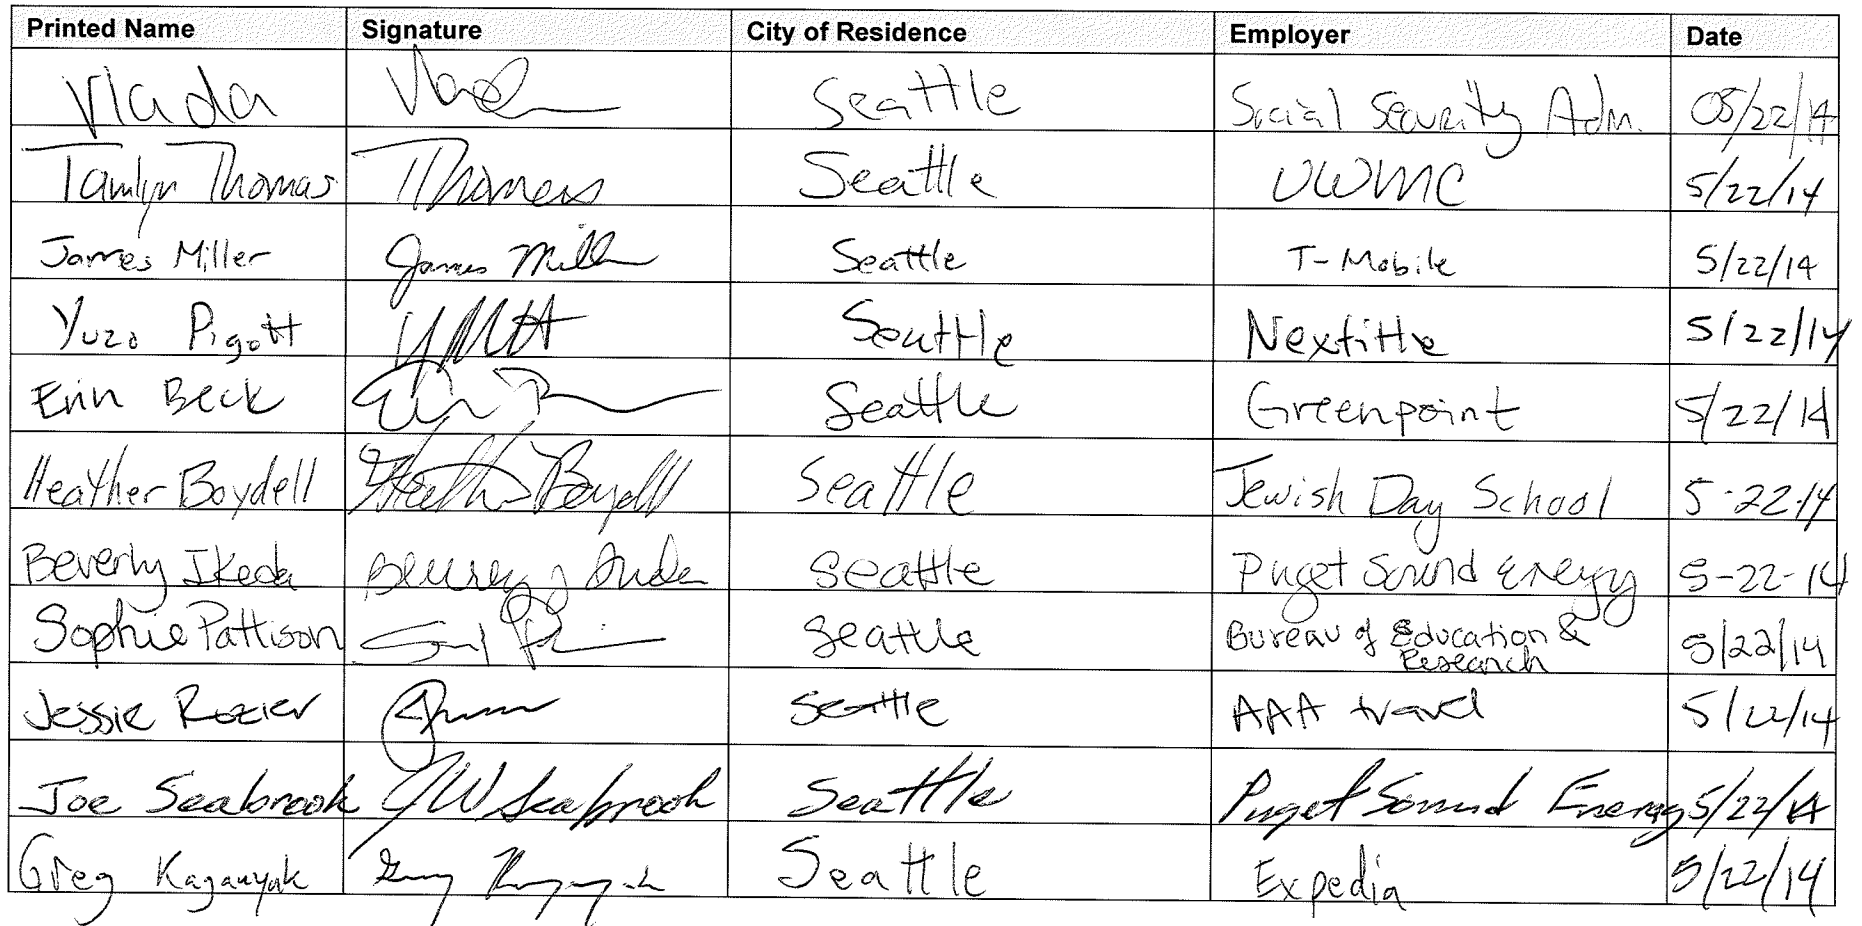 Printed Name Signature City of Residence Employer Date
Vlada Seattle Social Security Adm. 05/22/14
Tamlyn Thomas Thomas Seattle UWMC 5/22/14
James Miller James Miller Seattle T-Mobile 5/22/14
Yuzo Pigott Seattle Nextitle 5/22/14
Erin Beck Seattle Greenpoint 5/22/14
Heather Boydell Heather Boydell Seattle Jewish Day School 5-22-14
Beverly Ikeda Seattle Puget Sound Energy 5-22-14
Sophie Pattison Seattle Bureau of Education &
Research 5/22/14
Jessie Rozier Seattle AAA travel 5/22/14
Joe Seabrook JW Seabrook Seattle Puget Sound Energy 5/22/14
Greg Seattle Expedia 5/22/14